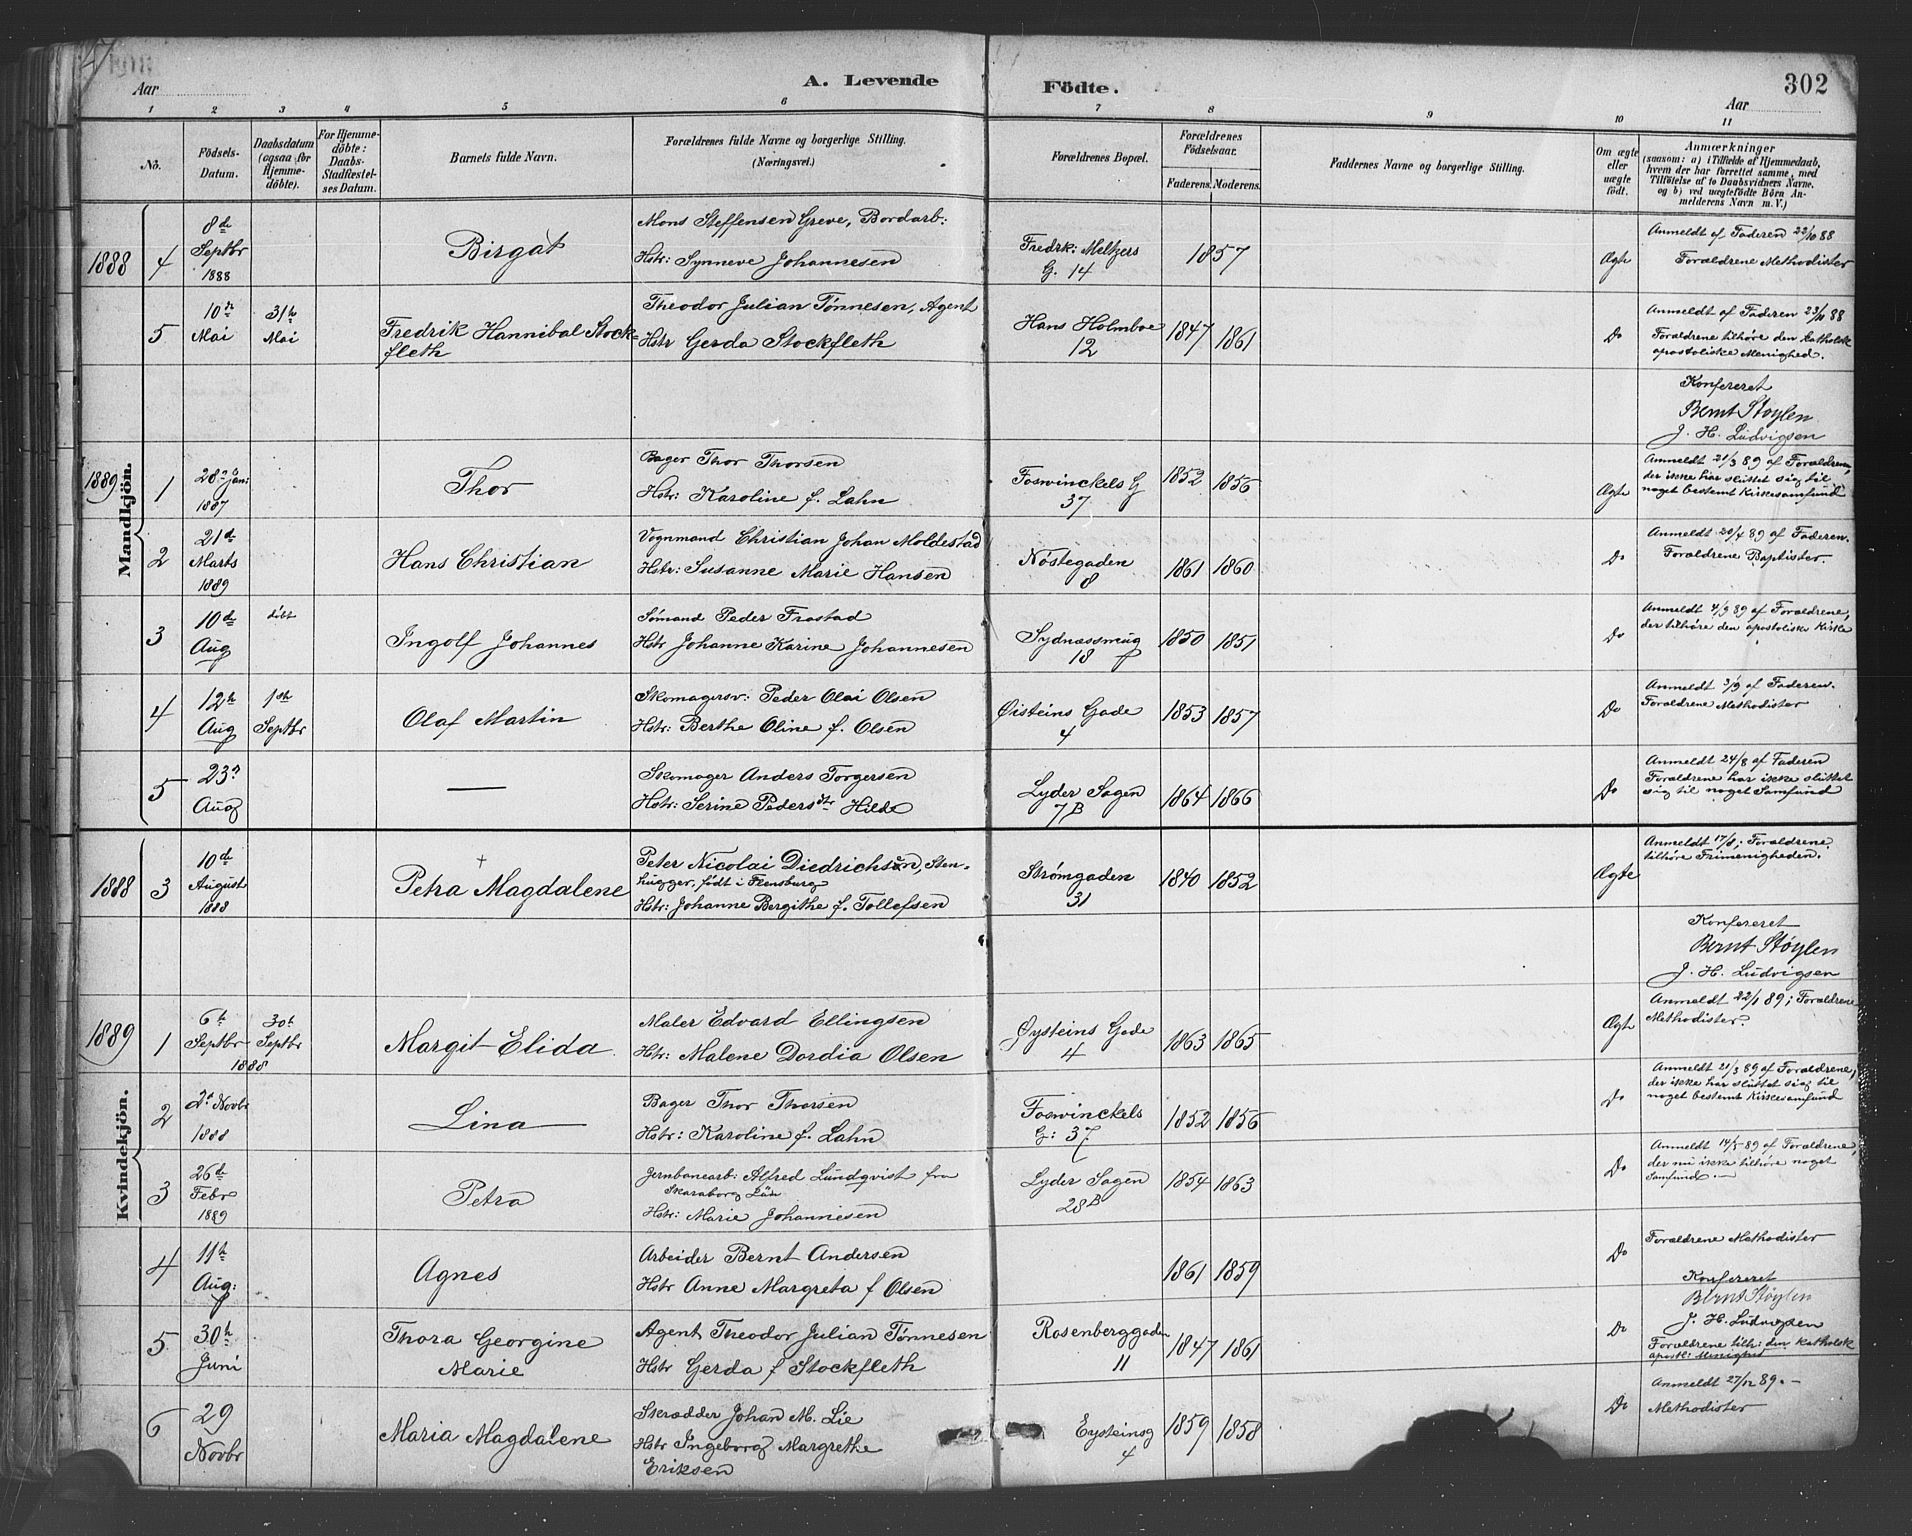 A. Levende Födte.
302
Aar
Aar
1 2 3 4 5 6 7 8 9 10 11
No.
Födsels-
Datum.
Daabsdatum
(ogsaa for
Hjemme-
döbte).
For Hjemme-
döbte:
Daabs-
Stadfæstel-
ses Datum.
Barnets fulde Navn.
Forældrenes fulde Navne og borgerlige Stilling.
(Næringsvei.)
Forældrenes Bopæl.
Forældrenes
Födselsaar.
Faderens. Moderens.
Faddernes Navne og borgerlige Stilling.
Om ægte
eller
uægte
födt.
Anmærkninger
(saasom: a) i Tilfælde af Hjemmedaab,
hvem der har forrettet samme, med
Tilföielse af to Daabsvidners Navne,
og b) ved uægtefödte Börn An-
melderens Navn m. V.)
Mandkjön.
1888 4
8de
Septbr
1888
Birgat
Mons Steffensen Greve, Bordarb:
Hstr: Synneve Johannesen
Fredrk: Meltzers
G. 14
1857
Ægte
Anmeldt af Faderen 22/10 88
Forældrene Methodister
5
10de
Mai
31te
Mai
Fredrik Hannibal Stock-
fleth
Theodor Julian Tønnesen, Agent
Hstr Gerda Stockfleth
Hans Holmboe
12
1847 1861
Do
Anmeldt af Faderen 23/11 88
Forældrene tilhøre den katholsk
apostoliske Menighed.
Konfereret
Bernt Støylen
J. H. Ludvigsen
1889 1
28de Jan:
1887
Thor
Bager Thor Thorsen
Hstr: Karoline f. Lahn
Foswinckels G
37
1852 1856
Ægte
Anmeldt 21/3 89 af Forældrene,
der ikke har sluttet sig til
noget bestemt Kirkesamfund
2
21de
Marts
1889
Hans Christian
Vognmand Christian Johan Moldestad
Hstr: Susanne Marie Hansen
Nøstegaden
8
1861 1860
Do
Anmeldt 20/4 89 af Faderen.
Forældrene Baptister.
3
10de
Aug
døbt
Ingolf Johannes
Sømand Peder Frostad
Hstr Johanne Karine Johannesen
Sydnæssmug
18
1850 1851
Do
Anmeldt 4/9 89 af Forældrene,
der tilhøre den apostoliske Kirke
4
12te
Aug
1ste
Septbr
Olaf Martin
Skomagersv: Peder Olai Olsen
Hstr: Berthe Oline f. Olsen
Øisteins Gade
4
1853 1857
Do
Anmeldt 3/9 af Faderen.
Forældrene Methodister
5
23de
Aug
—
Skomager Anders Torgersen
Hstr: Serine Pedersdtr Hilde
Lyder Sagen
7B
1864 1866
Do
Anmeldt 24/8 af Faderen
Forældrene har ikke sluttet
sig til noget Samfund
Kvindekjön.
1888 3
10de
August
1888
†
Petra Magdalene
Peter Nicolai Diedrichsen, Sten-
hugger, født i Flensburg
Hstr: Johanne Bergithe f. Tollefsen
Strømgaden
31
1840 1852
Ægte
Anmeldt 17/8; Forældrene
tilhøre Frimenigheden.
Konfereret
Bernt Støylen
J. H. Ludvigsen
1889 1
6te
Septbr
1888
30te
Septbr
Margit Elida
Maler Edvard Ellingsen
Hstr: Malene Dordia Olsen
Øysteins Gade
4
1863 1865
Ægte
Anmeldt 22/1 89; Forældrene
Methodister.
2
2de Novbr
1888
Lina
Bager Thor Thorsen
Hstr: Karoline f. Lahn
Foswinckels
G: 37
1852 1856
Do
Anmeldt 21/3 89 af Forældrene,
der ikke har sluttet sig til
noget bestemt Kirkesamfund
3
26de
Febr
1889
Petra
Jernbanearb: Alfred Lundqvist fra
Skaraborg Län
Hstr: Marie Johannesen
Lyder Sagen
28B
1854 1863
Do
Anmeldt 14/5 89 af Forældrene,
der nu ikke tilhøre noget
Samfund.—
4
11te
Aug:
Agnes
Arbeider Bernt Andersen
Hstr Anne Margreta f Olsen
1861 1859
Do
Forældrene Methodister
Konfereret
Bernt Støylen
J. H. Ludvigsen
5
30te
Juni
Thora Georgine
Marie
Agent Theodor Julian Tønnesen
Hstr Gerda f Stockfleth
Rosenberggaden
11
1847 1861
Do
Forældrene tilh: den katholsk
apostl: Menighed
6
29
Novbr
Maria Magdalene
Skrædder Johan M. Lie
Hstr Ingeborg Margrethe
Eriksen
Eysteinsg
4
1859 1858
Do
Anmeldt 27/12 89.—
Methodister